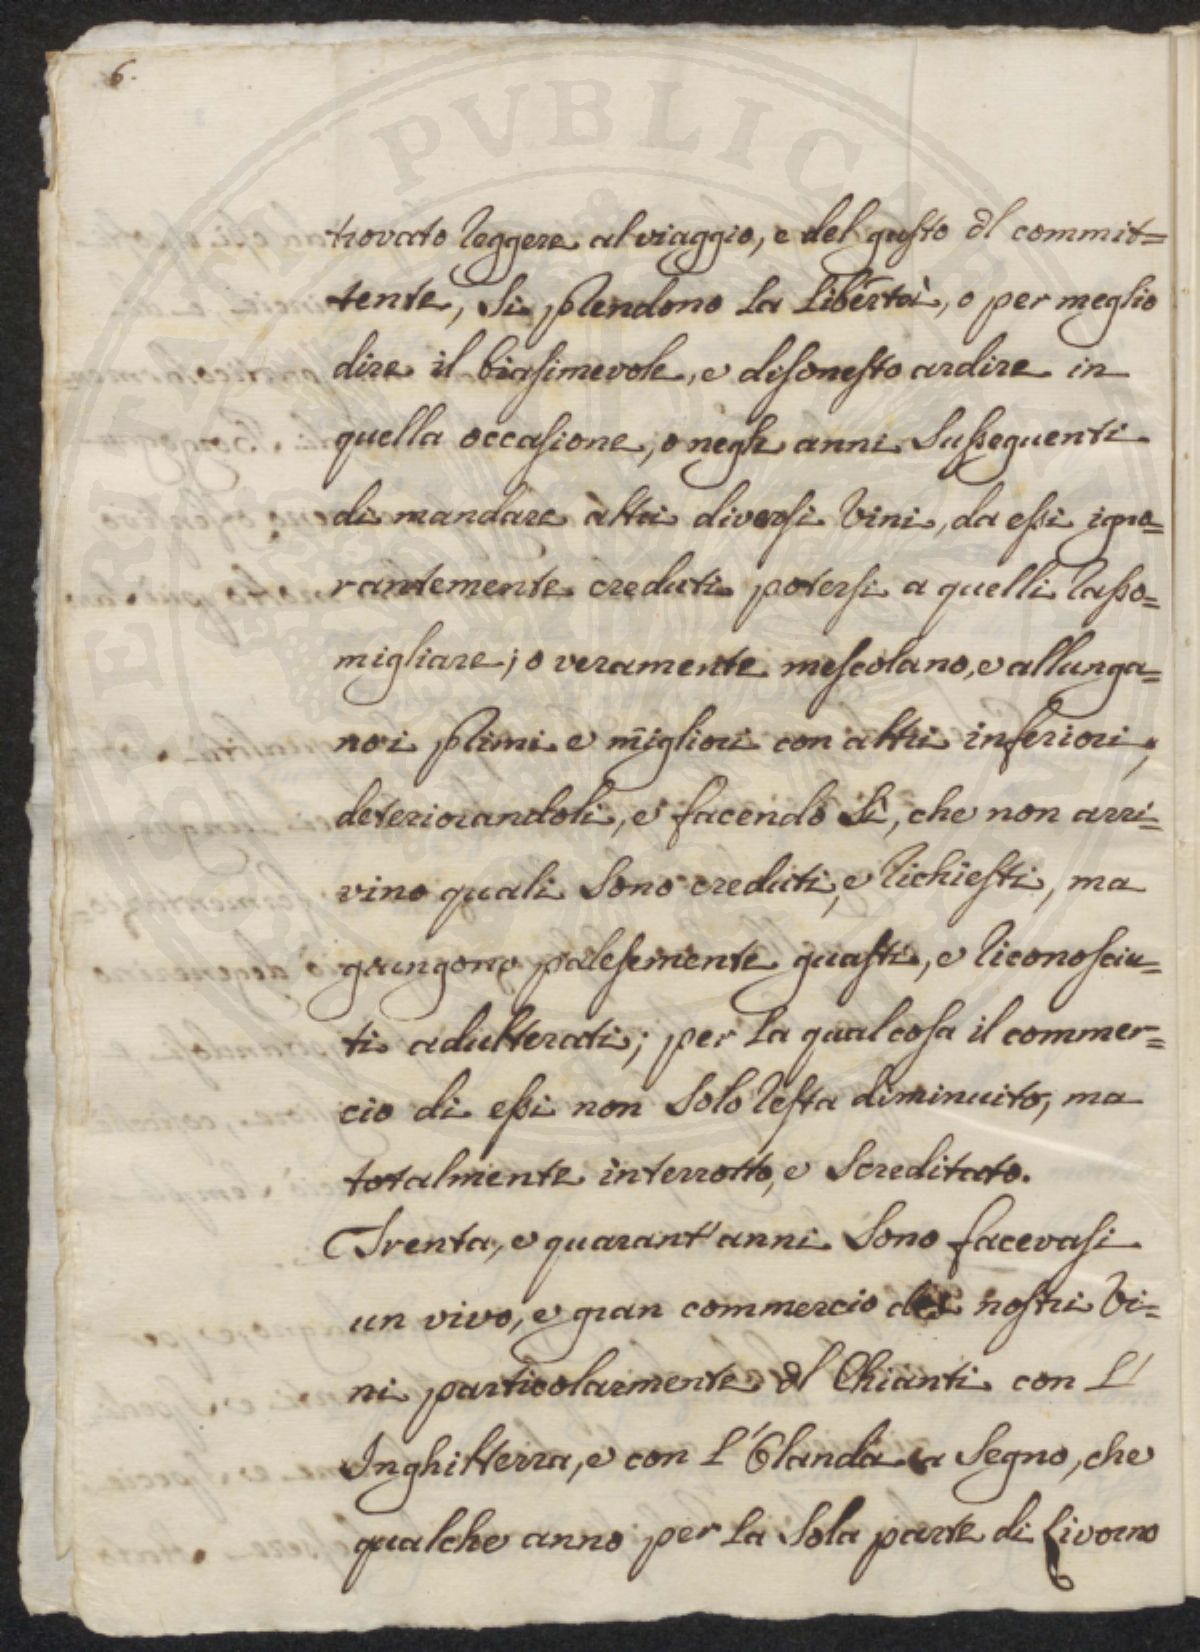 6.
trovato reggere al viaggio, e del gusto dl commit=
tente, si prendono la libertà, o per meglio
dire il biasimevole, e disonesto ardire in
quella occasione, o negli anni susseguenti
di mandare altri diversi Vini, da essi igno=
rantemente creduti potersi a quelli rasso=
migliare; o veramente mescolano, e allunga=
no i primi e migliori con altri inferiori,
deteriorandoli, e facendo sì, che non arri=
vino quali sono creduti, e richiesti, ma
giungono palesemente guasti, e riconosciu=
ti adulterati; per la qual cosa il commer=
cio di essi non solo resta diminuito, ma
totalmente interrotto, e screditato.
Trenta, e quarant'anni sono facevasi
un vivo, e gran commercio dei nostri Vi=
ni particolarmente dl Chianti con l'
Inghilterra, e con l'Olanda a segno, che
qualche anno per la sola parte di Livorno
PVBLICAE